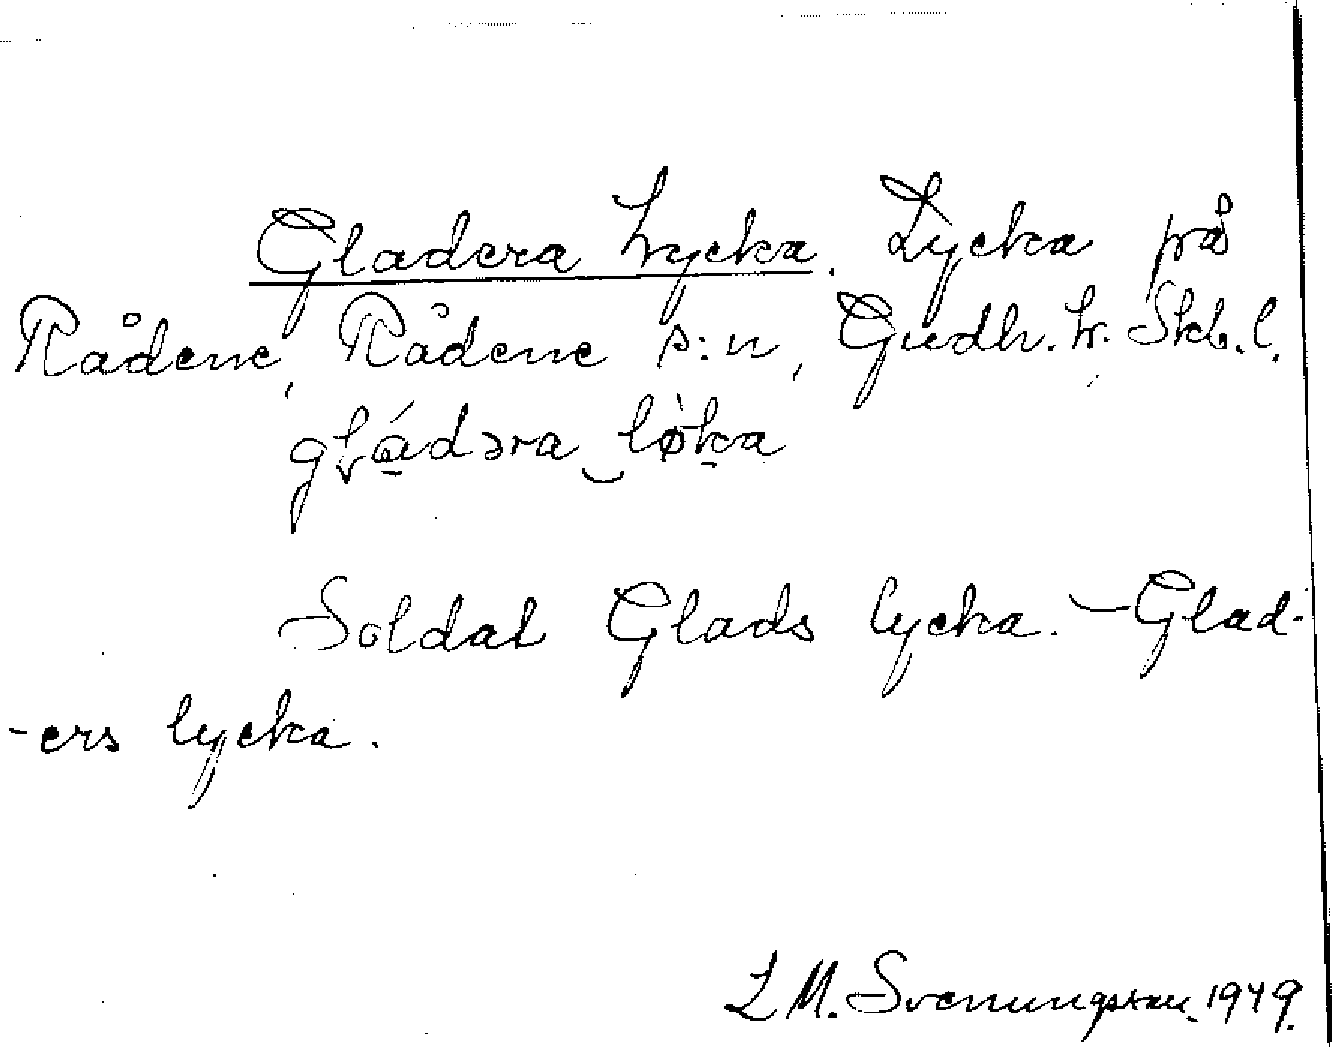 Gladera Lycka. Lycka på
Rådene, Rådene s:n, Gudh. hr. Skb. l.
Soldat Glads lycka. – Glad-
-ers lycka.
L M. Svenungsson. 1949.